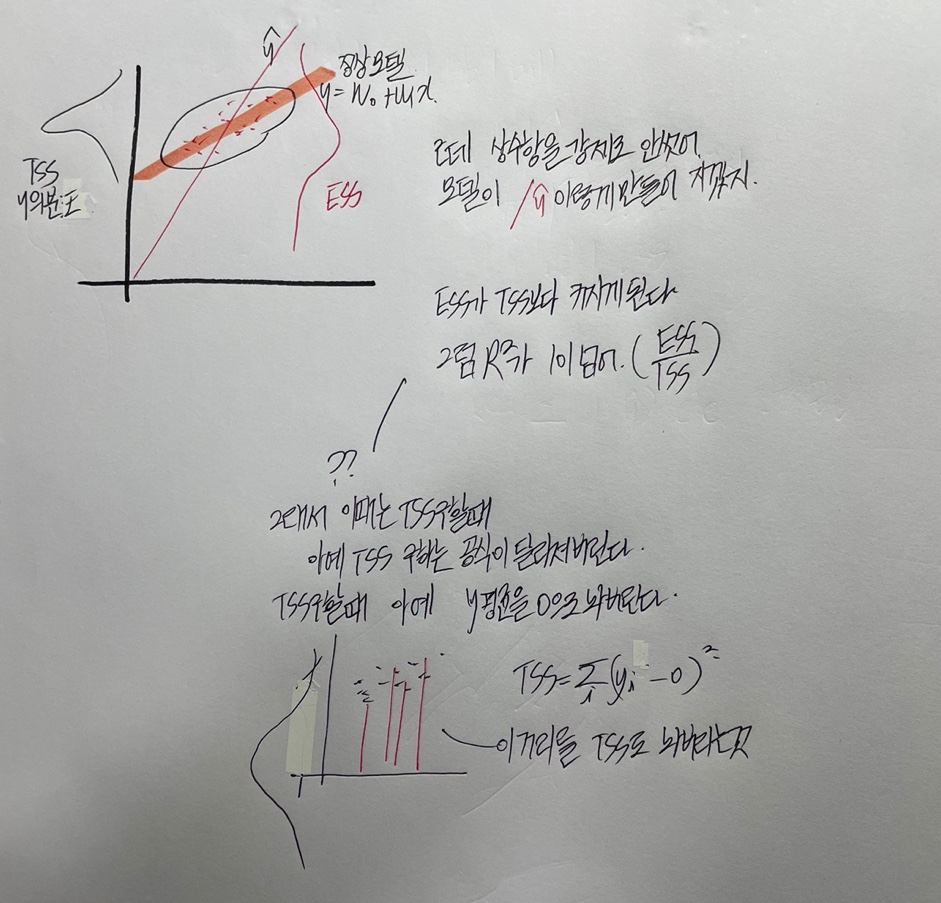 ŷ
정상모델
y = w₀ + w₁x.
TSS
y의분포.
ESS
근데 상수항을 강제로 안썼어.
모델이 / ŷ 이렇게 만들어 지겠지.
ESS가 TSS보다 커지게된다
그럼 R²가 1이 넘어. (ESS/TSS)
??
그래서 이때는 TSS구할때
아예 TSS 구하는 공식이 달라져버린다.
TSS구할때 아예 y평균을 0으로 놔버린다.
TSS = Σᵢ(yᵢ - 0)²
이거리를 TSS로 놔버리는것